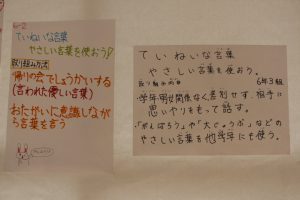 ていねいな言葉
やさしい言葉を使おう!
取り組み方法
帰りの会でしょうかいする
(言われた優しい言葉)
おたがいに意識しなが
ら言葉を言う
ていねいな言葉
やさしい言葉を使おう。
6年3組
取り組み内容
・学年、男女関係なく差別せず、相手に
思いやりをもって話す。
・「がんばろう」や「大じょうぶ」などの
やさしい言葉を他学年にも使う。